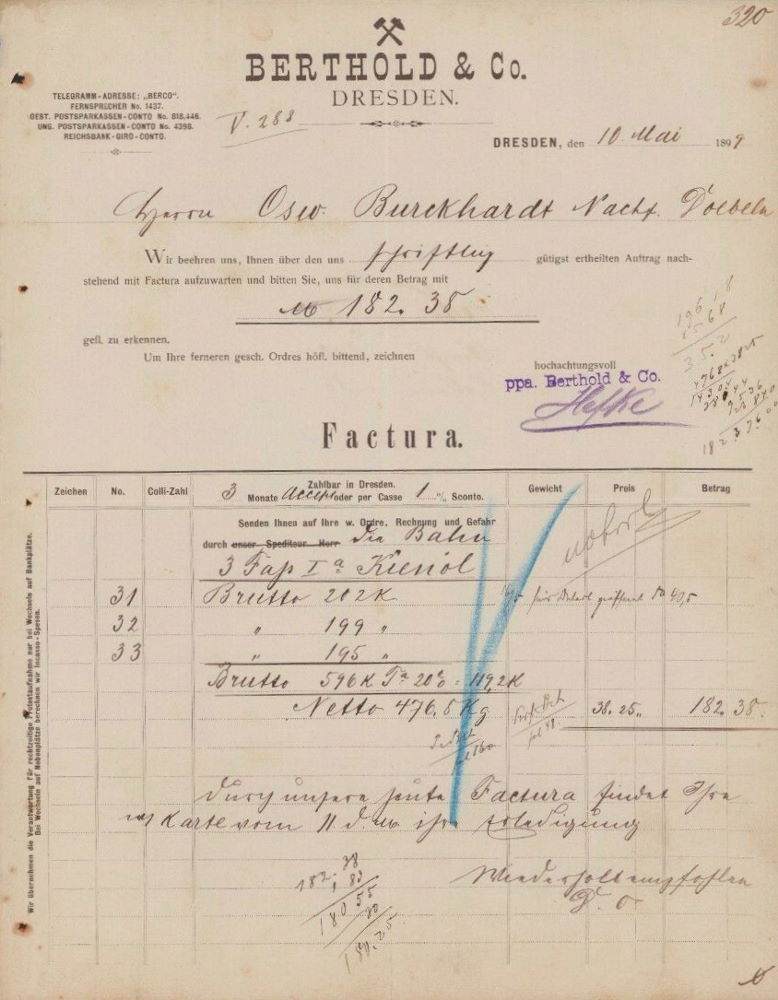 320
BERTHOLD & Co.
DRESDEN.
TELEGRAMM-ADRESSE: „BERCO“.
FERNSPRECHER No. 1437.
OEST. POSTSPARKASSEN-CONTO No. 818,446.
UNG. POSTSPARKASSEN-CONTO No. 4398.
REICHSBANK-GIRO-CONTO.
V. 288
DRESDEN, den 10. Mai 1899
Herrn Osw. Burckhardt Nachf. Doebeln
Wir beehren uns, Ihnen über den uns schriftlich gütigst ertheilten Auftrag nach-
stehend mit Factura aufzuwarten und bitten Sie, uns für deren Betrag mit
M 182. 38
gefl. zu erkennen.
Um Ihre ferneren gesch. Ordres höfl. bittend, zeichnen
hochachtungsvoll
ppa. Berthold & Co.
Factura.
Zeichen No. Colli-Zahl
Zahlbar in Dresden.
3 Monate Accept oder per Casse 1 % Sconto.
Gewicht Preis Betrag
Senden Ihnen auf Ihre w. Ordre, Rechnung und Gefahr
durch unser Spediteur Herr die Bahn
3 Faß Ia Kienöl
31 Brutto 202 K
32 „ 199 „
33 „ 195 „
Brutto 596 K Ta 20% = 119,2 K
Netto 476.8 Kg 38. 25„ 182. 38.
Durch unsere heute Factura findet Ihre
Karte vom 11 d. M ihre Erledigung
Wiederholt empfohlen
D. O.
182,38
1,83
180 55
30
180.25
Wir übernehmen die Verantwortung für rechtzeitige Protestaufnahme nur bei Wechseln auf Bankplätze.
Bei Wechseln auf Nebenplätze berechnen wir Incasso-Spesen.